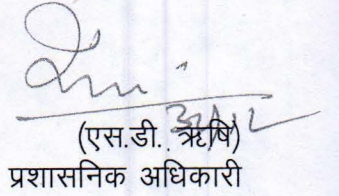 (एस.डी. ऋषि)
प्रशासनिक अधिकारी